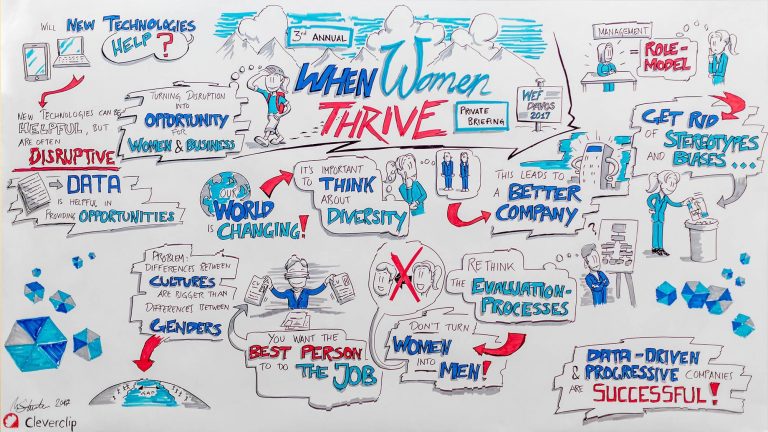 3rd ANNUAL
WHEN Women
THRIVE
PRIVATE
BRIEFING
WEF
DAVOS
2017
WILL NEW TECHNOLOGIES
HELP?
NEW TECHNOLOGIES CAN BE
HELPFUL, BUT
ARE OFTEN
DISRUPTIVE
TURNING DISRUPTION
INTO
OPPORTUNITY
FOR
WOMEN & BUSINESS
DATA
IS HELPFUL IN
PROVIDING OPPORTUNITIES
OUR
WORLD
IS CHANGING!
IT'S IMPORTANT
TO THINK
ABOUT
DIVERSITY
THIS LEADS TO
A BETTER
COMPANY
MANAGEMENT
= ROLE-
MODEL
GET RID
OF STEREOTYPES
AND BIASES...
PROBLEM:
DIFFERENCES BETWEEN
CULTURES
ARE BIGGER THAN
DIFFERENCES BETWEEN
GENDERS
YOU WANT THE
BEST PERSON
TO DO THE JOB
DON'T TURN
WOMEN
INTO
MEN!
RETHINK
THE EVALUATION-
PROCESSES
DATA-DRIVEN
& PROGRESSIVE COMPANIES
ARE SUCCESSFUL!
2017
Cleverclip